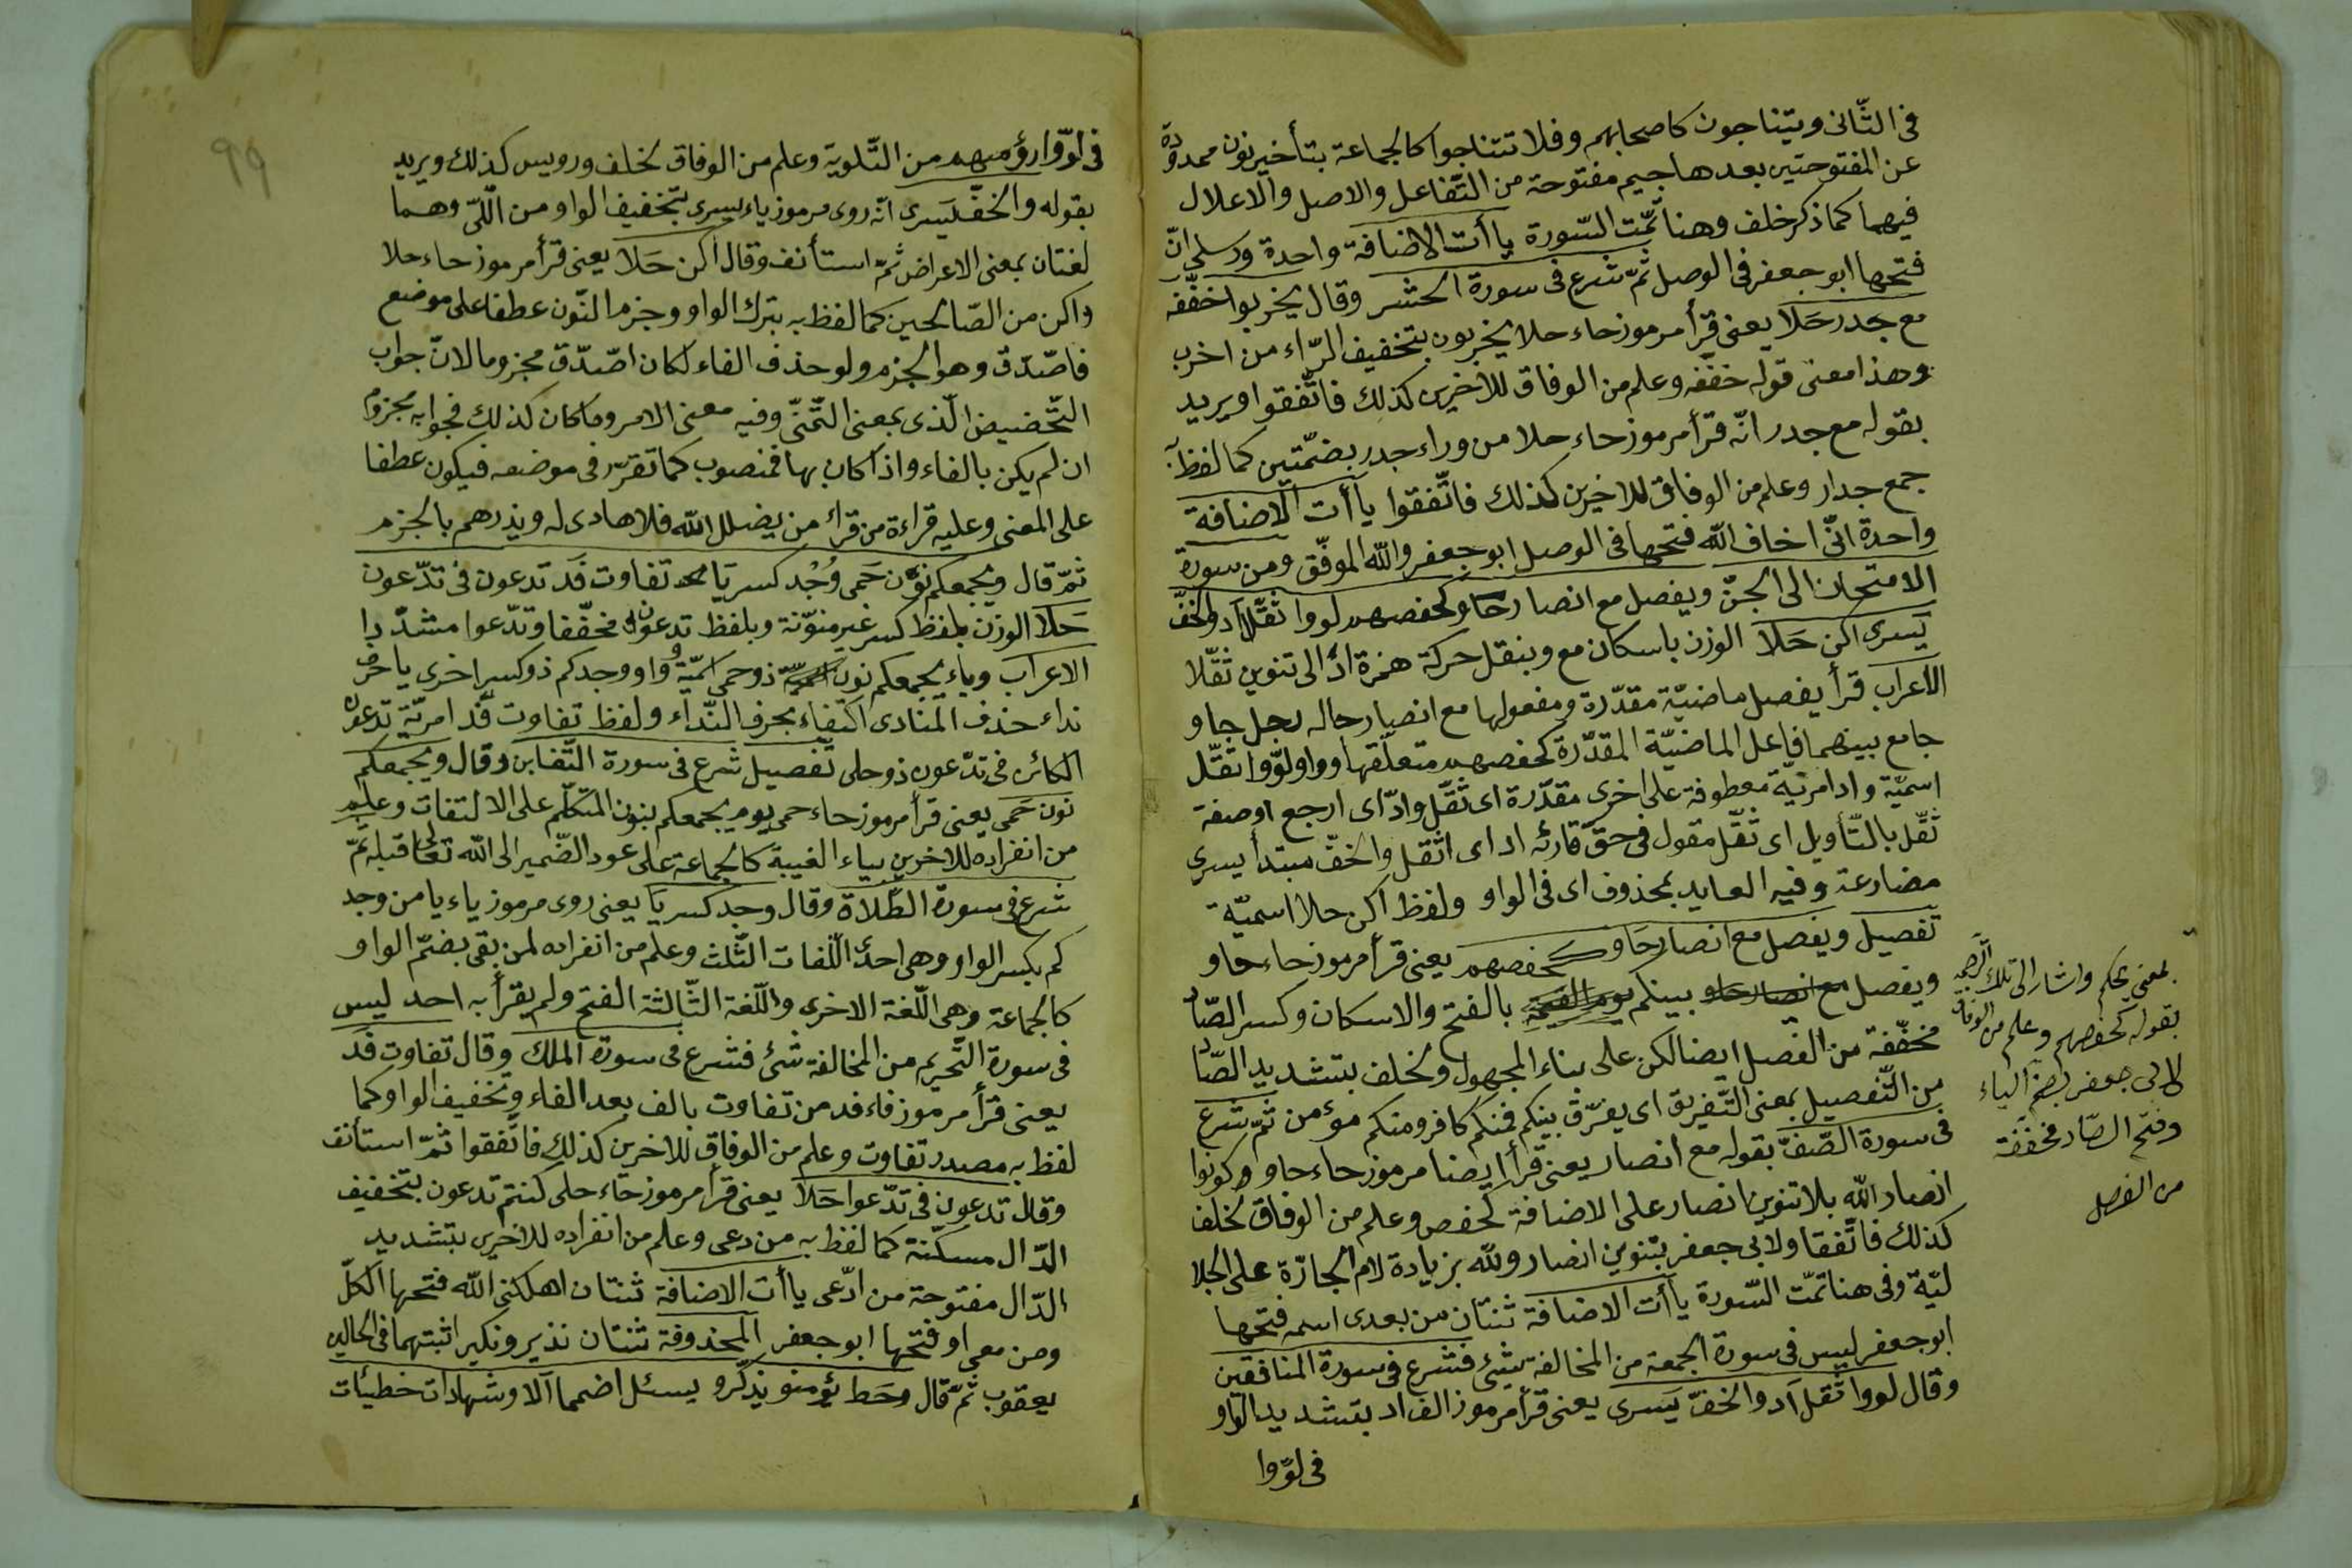 فى الثّانى ويتناجون كاصحابهم وفلا تتناجوا كالجماعة بتأخير نون ممدودة
عن المفتوحتين بعدها جيم مفتوحة من التّفاعل والاصل والاعلال
فيهما كما ذكر خلف وهنا تمّت السّورة ياأت الاضافة واحدة ورسلى انّ
فتحها ابو جعفر فى الوصل ثمّ شرع فى سورة الحشر وقال يخربوا خفّفه
مع جدر حَلَا يعنى قرأ مرموز حاء حلا يخربون بتخفيف الرّاء من اخرب
وهذا معنى قوله خففه وعلم من الوفاق للاخيرين كذلك فاتّفقوا ويريد
بقوله مع جدر انّه قرأ مرموز حاء حلا من وراء جدر بضمّتين كما لفظ به
جمع جدار وعلم من الوفاق للاخرين كذلك فاتّفقوا ياأت الاضافة
واحدة انّى اخاف الله فتحها فى الوصل ابو جعفر والله الموفّق ومن سورة
الامتحان الى الجنّ ويفصل مع انصار حاو كحفصهم لووا ثقّلا اد والخفّ
يَسرى اكن حَلَا الوزن باسكان مع وبنقل حركة همزة اد الى تنوين ثقّلا
الاعراب قرأ يفصل ماضيّة مقدّرة ومفعولها مع انصار حاله رجل حاو
جامع بينهما فاعل الماضيّة المقدّرة كحفصهم متعلّقها وواو لوّوا ثقّل
اسميّة واد امريّة معطوفة على اخرى مقدّرة اى ثقّل وادّ اى ارجع اوصفة
ثقّل بالتّأويل اى ثقّل مقول فى حقّ قارئه اد اى اثقل والخفّ مبتدأ يسرى
مضارعة وفيه العايد بمحذوف اى فى الواو ولفظ اكن حلا اسميّة
تفصيل ويفصل مع انصار حَاو كحفصهم يعنى قرأ مرموز حاء حاو
ويفصل بينكم بالفتح والاسكان وكسر الصّاد
مخفّفة من الفصل ايضا لكن على بناء المجهول ولخلف بتشديد الصّاد
من التّفصيل بمعنى التّفريق اى يفرّق بينكم فمنكم كافر ومنكم مؤمن ثمّ شرع
فى سورة الصّفّ بقوله مع انصار يعنى قرأ ايضا مرموز حاء حاو وكونوا
انصار الله بلا تنوين انصار على الاضافة كحفص وعلم من الوفاق لخلف
كذلك فاتّفقا ولابى جعفر بتنوين انصار ولله بزيادة لام الجارّة على الجلا
ليّة وفى هنا تمّت السّورة ياأت الاضافة ثنتان من بعدى اسمه فتحها
ابو جعفر ليس فى سورة الجمعة من المخالفة شئ فشرع فى سورة المنافقين
وقال لووا ثقل اَد والخفّ يَسرى يعنى قرأ مرموز الف اد بتشديد الواو
فى لوّوا
بمعنى يحكم واشار الى تلك
بقوله كحفصهم وعلم من الوفاق
لابى جعفر بضمّ الياء
وفتح الصّاد مخفّفة
من الفصل
99
فى لوّوا رؤسهم من التّلوية وعلم من الوفاق لخلف ورويس كذلك ويريد
بقوله والخفّ يَسرى انّه روى مرموز ياء يسرى بتخفيف الواو من اللّىّ وهما
لغتان بمعنى الاعراض ثمّ استأنف وقال اكن حَلَا يعنى قرأ مرموز حاء حلا
واكن من الصّالحين كما لفظ به بترك الواو وجزم النّون عطفا على موضع
فاصّدّق وهو الجزم ولو حذف الفاء لكان اصّدّق مجزوما لانّ جواب
التّحضيض الّذى بمعنى التّمنّى وفيه معنى الامر وما كان كذلك فجوابه مجزوم
ان لم يكن بالفاء واذا كان بها فمنصوب كما تقرّر فى موضعه فيكون عطفا
على المعنى وعليه قراءة من قرأ من يضلل الله فلا هادى له ويذرهم بالجزم
ثمّ قال ويجمعكم نون حَمى وُجْد كسر يَا تفاوت فَد تدعون فى تدّعون
حَلَا الوزن بلفظ كسر غير منوّنة وبلفظ تدعون مخفّفا وتدّعوا مشدّدا
الاعراب وياء يجمعكم نون ذو حمى اسميّة وواو وجدكم ذو كسر اخرى يا حرف
نداء حذف المنادى اكتفاء بحرف النّداء ولفظ تفاوت فد امريّة تدعون
الكائن فى تدّعون ذو حلى تفصيل شرع فى سورة التّغابن وقال ويجمعكم
نون حَمى يعنى قرأ مرموز حاء حمى يوم يجمعكم بنون المتكلّم على الالتفات وعلم
من انفراده للاخرين بياء الغيبة كالجماعة على عود الضّمير الى الله تعالى قبله ثمّ
شرع فى سورة الطّلاق وقال وجد كسر يَا يعنى روى مرموز ياء يا من وجد
كم بكسر الواو وهى احد اللّغات الثّلث وعلم من انفراده لمن بقى بضمّ الواو
كالجماعة وهى اللّغة الاخرى واللّغة الثّالثة الفتح ولم يقرأ به احد ليس
فى سورة التّحريم من المخالفة شئ فشرع فى سورة الملك وقال تفاوت فَد
يعنى قرأ مرموز فاء فد من تفاوت بالف بعد الفاء وتخفيف الواو كما
لفظ به مصدر تفاوت وعلم من الوفاق للاخرين كذلك فاتّفقوا ثمّ استأنف
وقال تدعون فى تدّعوا حَلَا يعنى قرأ مرموز حاء حلى كنتم تدعون بتخفيف
الدّال مسكّنة كما لفظ به من دعى وعلم من انفراده للاخرين بتشديد
الدّال مفتوحة من ادّعى ياأت الاضافة ثنتان اهلكنى الله فتحها الكلّ
ومن معى او فتحها ابو جعفر المحذوفة ثنتان نذير ونكير اثبتهما فى الحالين
يعقوب ثمّ قال وحَط يؤمنو يذكّرو يسئل اضمما اَلا وشهادات خطيئات